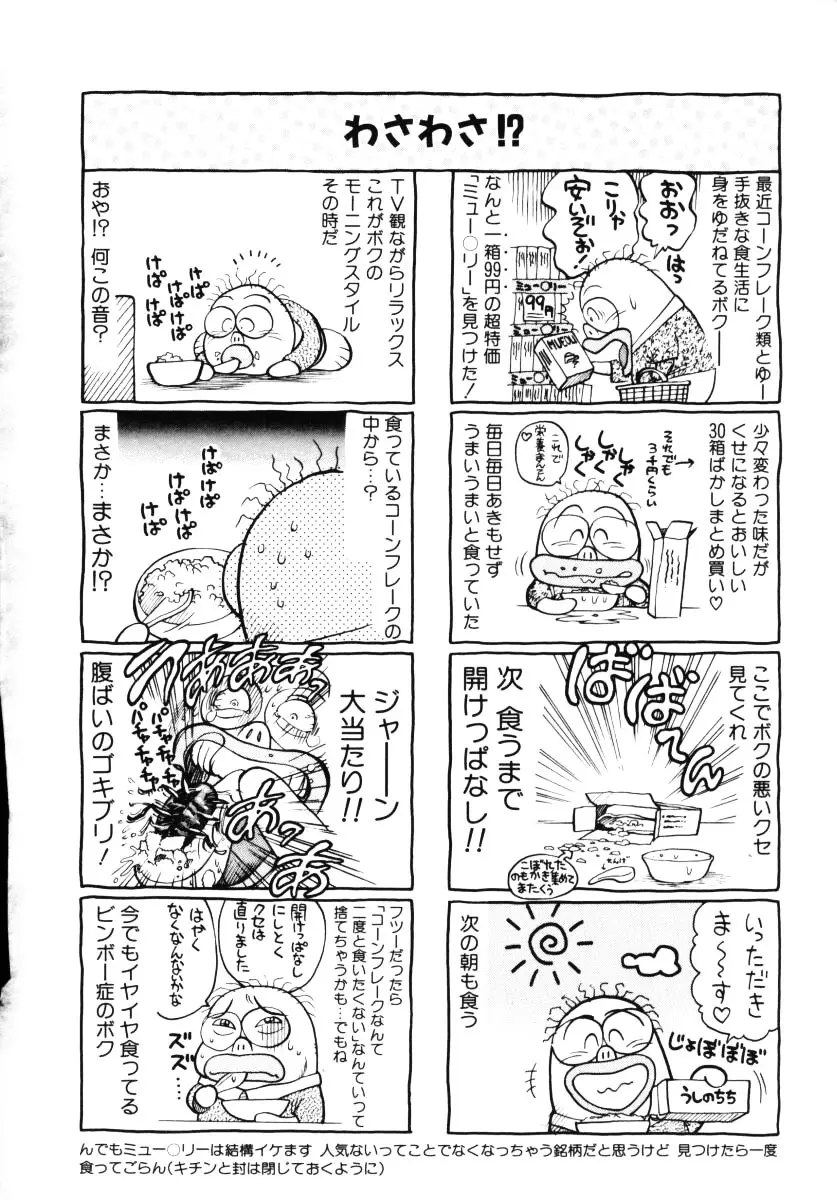 わさわさ!?
最近コーンフレーク類とゆー
手抜きな食生活に
身をゆだねてるボク──
おおっ
はっ
こりゃ
安いぞお!
ミュー○リー
99円
MUESLI
なんと一箱99円の超特価
「ミュー○リー」を見つけた!
少々変わった味だが
くせになるとおいしい
30箱ばかしまとめ買い♡
それでも
3千円くらい
→
しゃく
しゃく
しゃく
これで
栄養まんてん
♡
毎日毎日あきもせず
うまいうまいと食っていた
ここでボクの悪いクセ
見てくれ
ばばーん
次 食うまで
開けっぱなし!!
こぼれた
のもかき集めて
またくう
いっただき
ま〜〜す♡
じょぼぼぼぼ
うしのちち
次の朝も食う
TV観ながらリラックス
これがボクの
モーニングスタイル
その時だ
けぱ
けぱけぱ
けぱけぱ
けぱ
おや!? 何この音?
食っているコーンフレークの
中から…?
けぱけぱ
けぱけぱ
けぱ
まさか…まさか!?
ジャーーン
大当たり!!
あああっ
パチャパチャ
パチャパチャ
あっあっ
腹ばいのゴキブリ!
フツーだったら
「コーンフレークなんて
二度と食いたくない」なんていって
捨てちゃうかも…でもね
開けっぱなし
にしとく
クセは
直りました
はやく
なくなんないかな
ズズ
ズ……
今でもイヤイヤ食ってる
ビンボー症のボク
んでもミュー○リーは結構イケます 人気ないってことでなくなっちゃう銘柄だと思うけど 見つけたら一度
食ってごらん(キチンと封は閉じておくように)